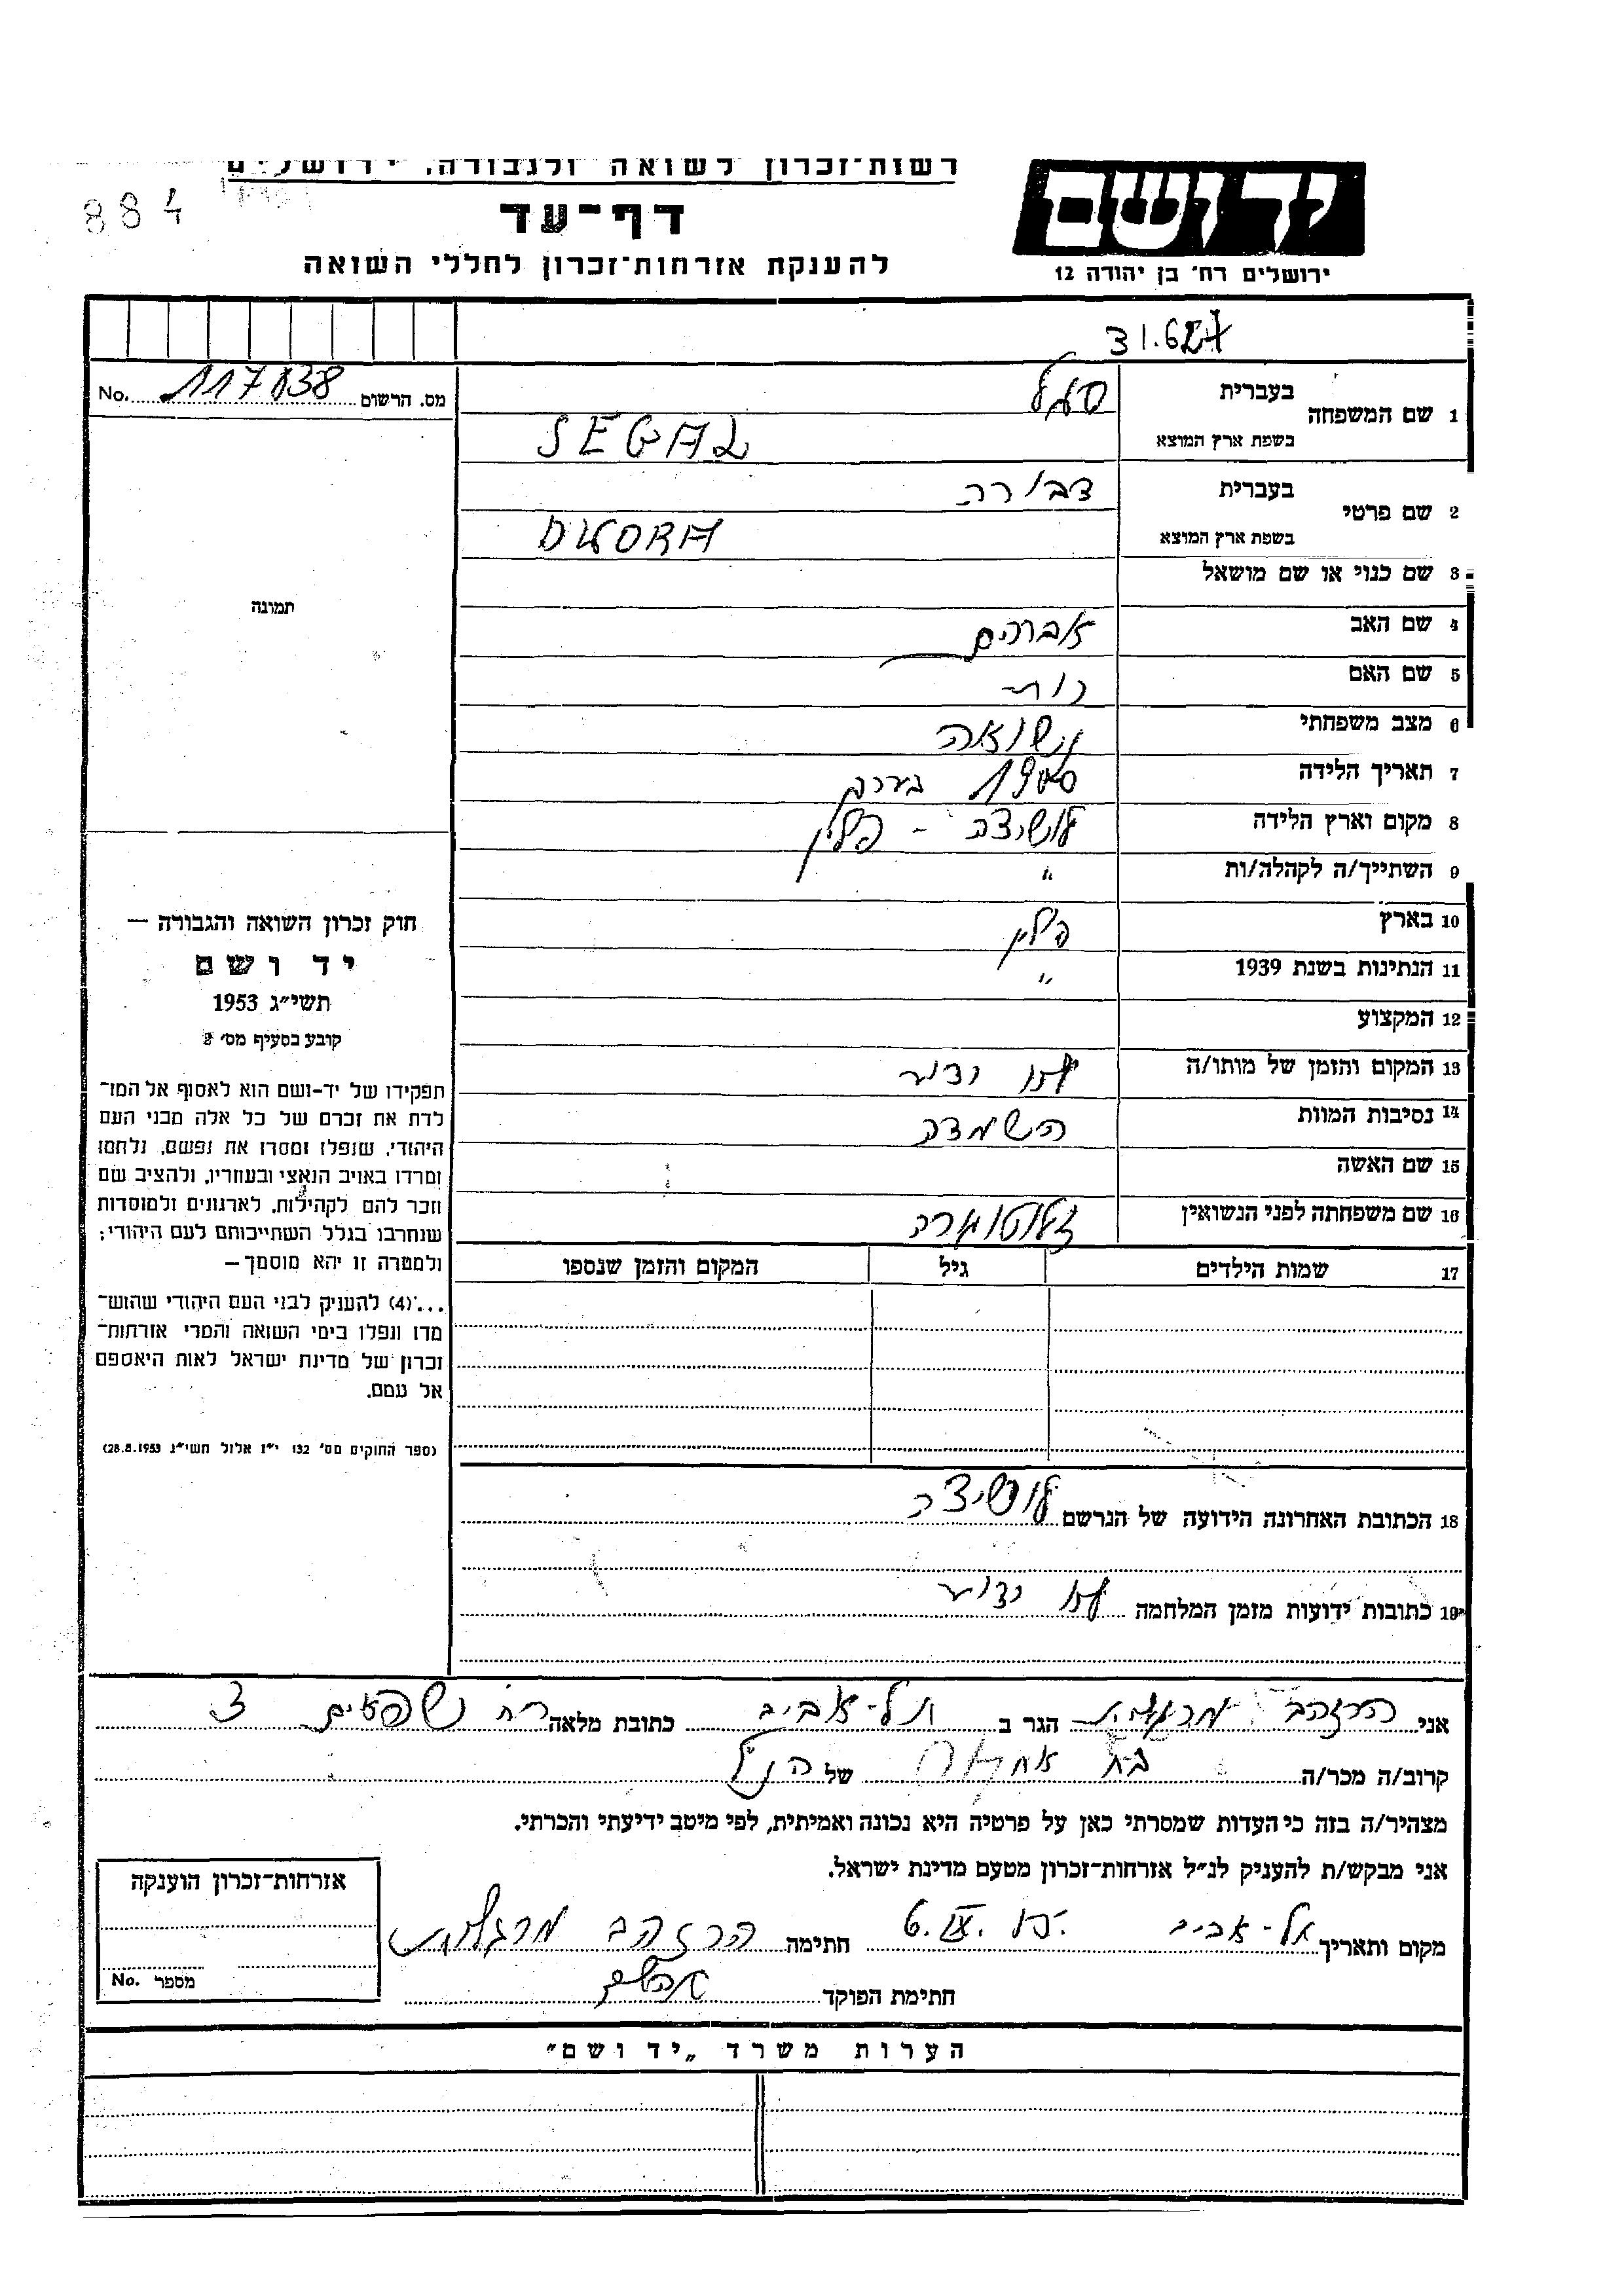 רשות־זכרון לשואה ולגבורה, ירושלים
יד ושם
884
דף־עד
להענקת אזרחות־זכרון לחללי השואה
ירושלים רח׳ בן יהודה 12
מס. הרשום 117038 No.
1 שם המשפחה
בעברית סגל
בשפת ארץ המוצא SEGAL
2 שם פרטי
בעברית דבורה
בשפת ארץ המוצא DWORA
3 שם כנוי או שם מושאל
תמונה
4 שם האב אברהם
5 שם האם רות
6 מצב משפחתי נשואה
7 תאריך הלידה 1900 בערך
8 מקום וארץ הלידה לושיצה - פולין
9 השתייך/ה לקהלה/ות "
10 בארץ פולין
11 הנתינות בשנת 1939 "
12 המקצוע
13 המקום והזמן של מותו/ה לא ידוע
14 נסיבות המוות השמדה
15 שם האשה
16 שם משפחתה לפני הנשואין
17 שמות הילדים גיל המקום והזמן שנספו
חוק זכרון השואה והגבורה —
יד ושם
תשי״ג 1953
קובע בסעיף מס׳ 2
תפקידו של יד-ושם הוא לאסוף אל המו־
לדת את זכרם של כל אלה מבני העם
היהודי, שנפלו ומסרו את נפשם, נלחמו
ומרדו באויב הנאצי ובעוזריו, ולהציב שם
וזכר להם לקהילות, לארגונים ולמוסדות
שנחרבו בגלל השתייכותם לעם היהודי;
ולמטרה זו יהא מוסמך —
...(4) להעניק לבני העם היהודי שהוש־
מדו ונפלו בימי השואה והמרי אזרחות־
זכרון של מדינת ישראל לאות היאספם
אל עמם.
(ספר החוקים מס׳ 132 י״ז אלול תשי״ג 28.8.1953)
18 הכתובת האחרונה הידועה של הנרשם לושיצה
19 כתובות ידועות מזמן המלחמה לא ידוע
אני הרזהב מרגלית הגר ב תל-אביב כתובת מלאה רח
קרוב/ה מכר/ה בת אחות של הנ"ל
מצהיר/ה בזה כי העדות שמסרתי כאן על פרטיה היא נכונה ואמיתית, לפי מיטב ידיעתי והכרתי.
אני מבקש/ת להעניק לנ״ל אזרחות־זכרון מטעם מדינת ישראל.
מקום ותאריך תל-אביב 6.IX. חתימה הרזהב מרגלית
חתימת הפוקד
אזרחות־זכרון הוענקה
מספר No.
הערות משרד „יד ושם״